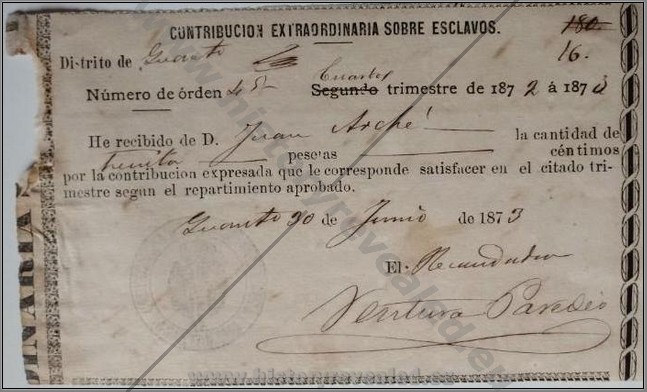 CONTRIBUCION EXTRAORDINARIA SOBRE ESCLAVOS.
180
16.
Distrito de
Cuarto
Número de órden 45 Segundo trimestre de 1872 á 1873
He recibido de D. Juan Arché la cantidad de
treinta pesetas céntimos
por la contribucion expresada que le corresponde satisfacer en el citado tri-
mestre segun el repartimiento aprobado.
30 de Junio de 1873
El Recaudador
Ventura Paredes